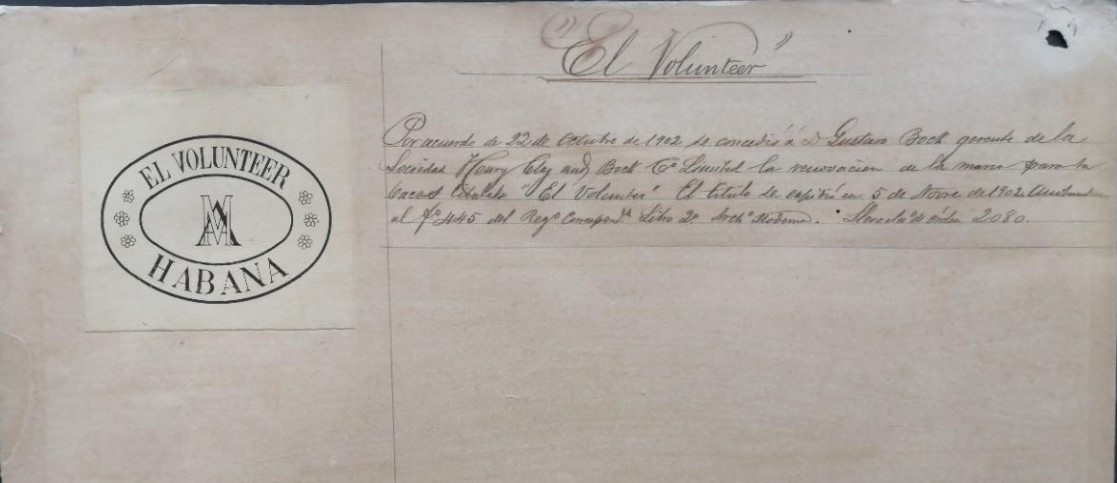 "El Volunteer"
EL VOLUNTEER
HABANA
Por acuerdo de 22 de Octubre de 1902 se concedió á D Gustavo Bock gerente de la
Sociedad Henry Clay and Bock Cº Limited la renovacion de la marca para
tabacos titulada "El Volunteer" El titulo se expidió en 5 de Novre de 1902
al fº 445 del Regº Correspondte Libro 2º Archº Moderno. Lleva el nº 2080.